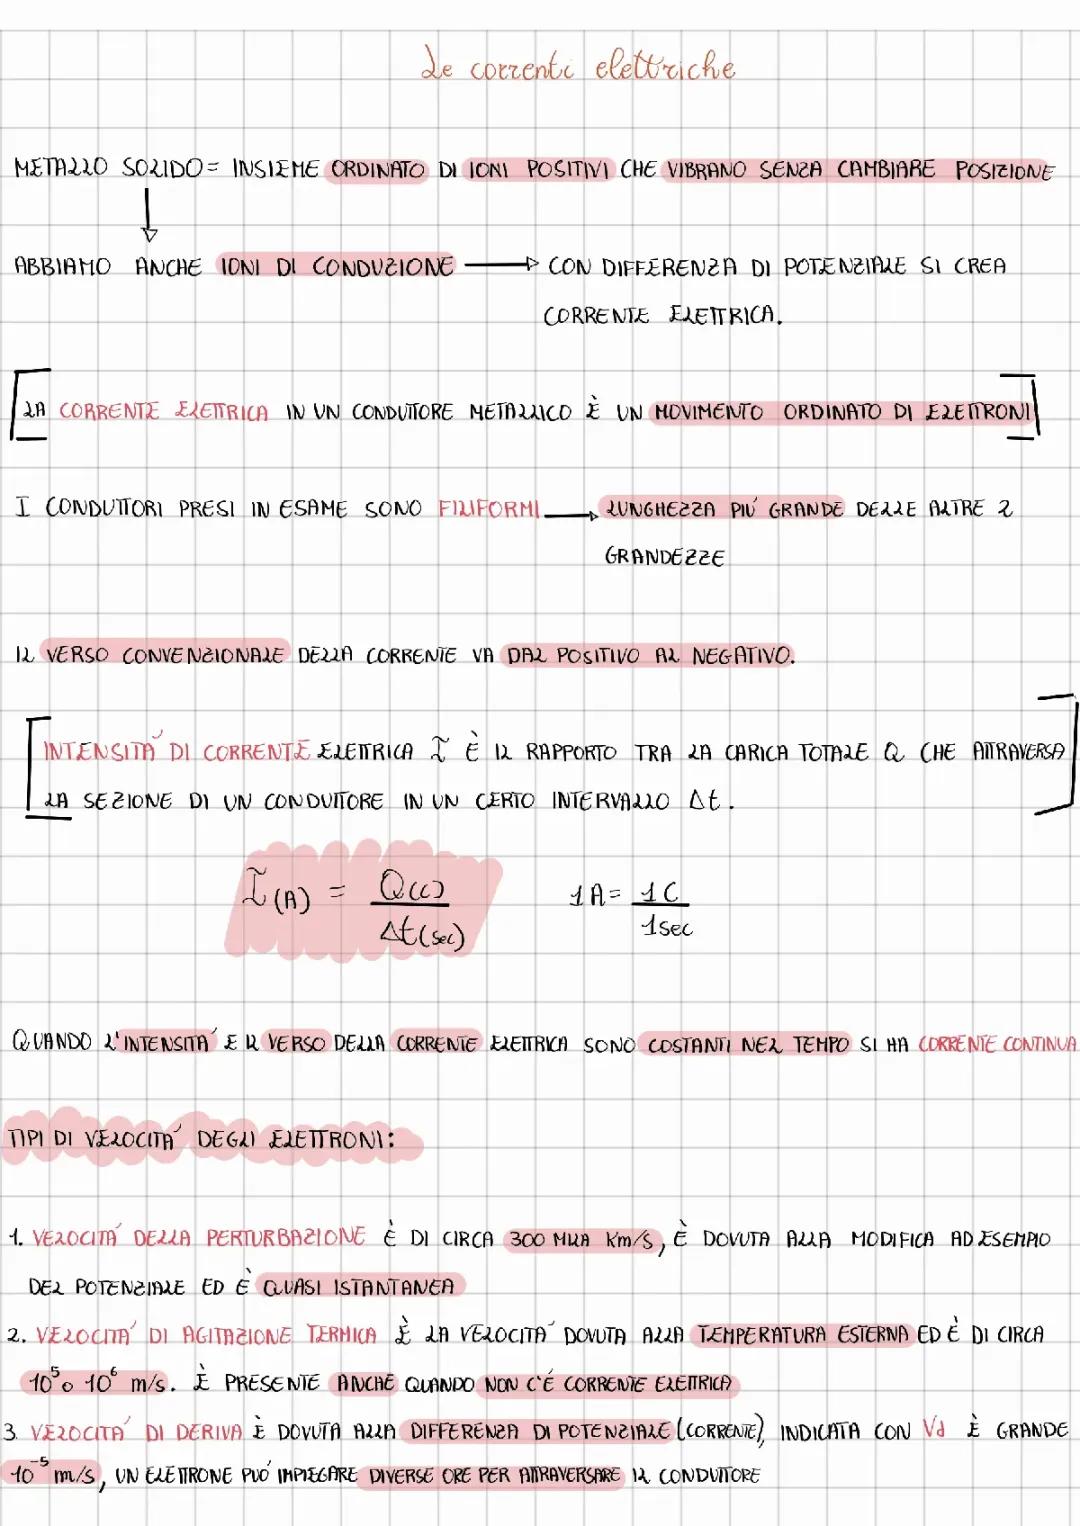 Le correnti elettriche
METALLO SOLIDO = INSIEME ORDINATO DI IONI POSITIVI CHE VIBRANO SENZA CAMBIARE POSIZIONE
ABBIAMO ANCHE IONI DI CONDUZIONE → CON DIFFERENZA DI POTENZIALE SI CREA
CORRENTE ELETTRICA.
LA CORRENTE ELETTRICA IN UN CONDUTTORE METALLICO È UN MOVIMENTO ORDINATO DI ELETTRONI
I CONDUTTORI PRESI IN ESAME SONO FILIFORMI → LUNGHEZZA PIÙ GRANDE DELLE ALTRE 2
GRANDEZZE
IL VERSO CONVENZIONALE DELLA CORRENTE VA DAL POSITIVO AL NEGATIVO.
INTENSITÀ DI CORRENTE ELETTRICA I È IL RAPPORTO TRA LA CARICA TOTALE Q CHE ATTRAVERSA
LA SEZIONE DI UN CONDUTTORE IN UN CERTO INTERVALLO Δt.
I(A) = Q(C) / Δt(sec) 1A = 1C / 1sec
QUANDO L'INTENSITÀ E IL VERSO DELLA CORRENTE ELETTRICA SONO COSTANTI NEL TEMPO SI HA CORRENTE CONTINUA
TIPI DI VELOCITÀ DEGLI ELETTRONI:
1. VELOCITÀ DELLA PERTURBAZIONE È DI CIRCA 300 MILA Km/s, È DOVUTA ALLA MODIFICA AD ESEMPIO
DEL POTENZIALE ED È QUASI ISTANTANEA
2. VELOCITÀ DI AGITAZIONE TERMICA È LA VELOCITÀ DOVUTA ALLA TEMPERATURA ESTERNA ED È DI CIRCA
10⁵ o 10⁶ m/s. È PRESENTE ANCHE QUANDO NON C'É CORRENTE ELETTRICA
3. VELOCITÀ DI DERIVA È DOVUTA ALLA DIFFERENZA DI POTENZIALE (CORRENTE), INDICATA CON Vd È GRANDE
10⁻⁵ m/s, UN ELETTRONE PUÒ IMPIEGARE DIVERSE ORE PER ATTRAVERSARE IL CONDUTTORE